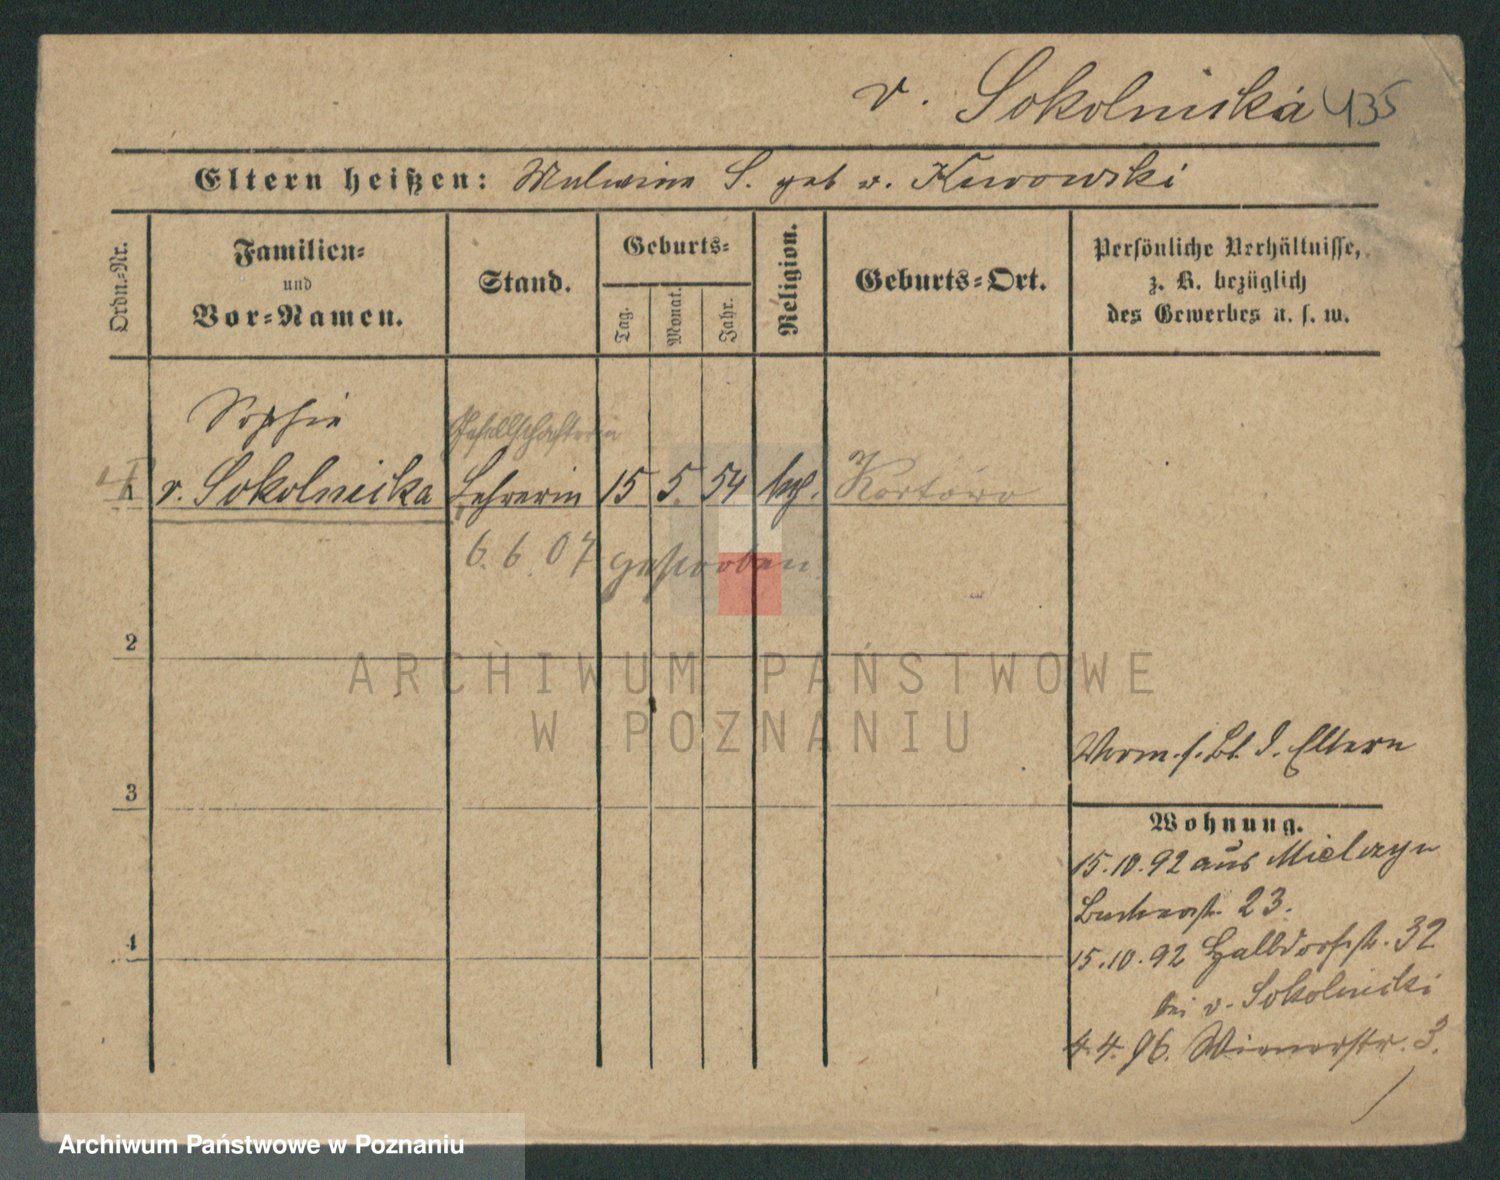 v. Sokolnicka 435
Eltern heißen: Malwina S. geb v.
Ordn.-Nr.
Familien-
und
Vor-Namen.
Stand.
Geburts-
Tag.
Monat.
Jahr.
Religion.
Geburts-Ort.
Persönliche Verhältnisse,
z. B. bezüglich
des Gewerbes u. s. w.
Sophie
Gesellschafterin
1 v. Sokolnicka Lehrerin 15 5. 54 kath.
6. 6. 07 gestorben
2
ARCHIWUM PAŃSTWOWE
W POZNANIU
3
4
Verm. s. Bl. d. Eltern
Wohnung.
15.10.92 aus Mielczyn
23.
15.10.92 Halbdorfstr. 32
bei v. Sokolnicki
4.4.96. Wienerstr. 3.
Archiwum Państwowe w Poznaniu